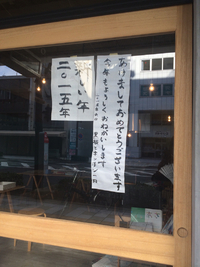 あけましておめでとうございます
今年もよろしくおねがいします
新しい年
二〇一五年